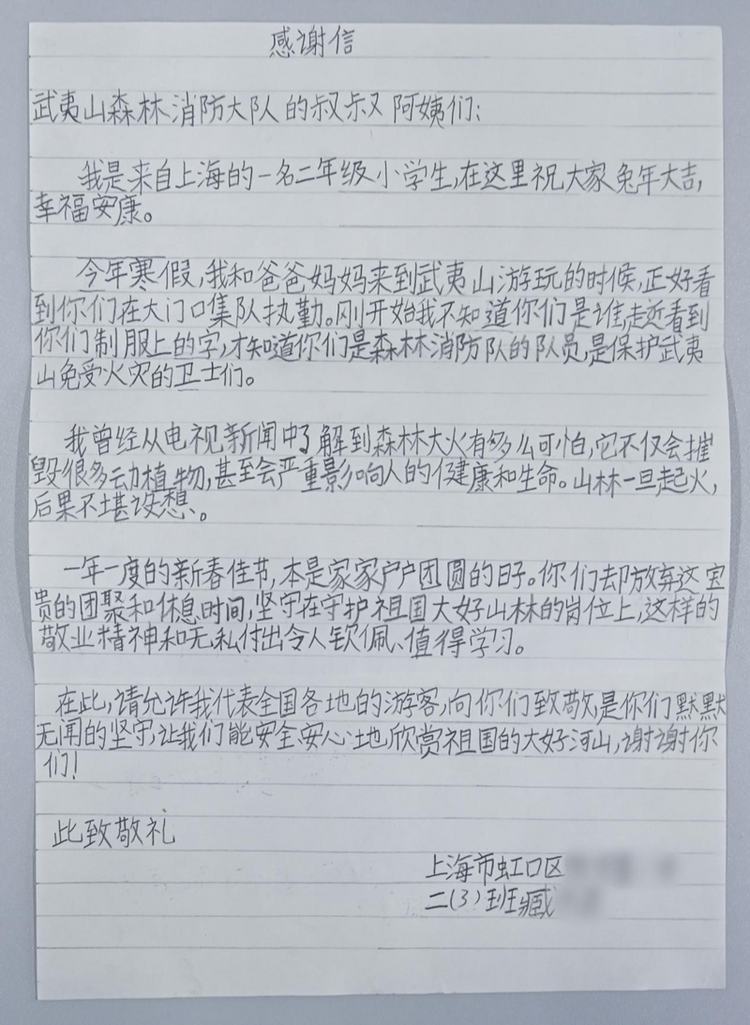 感谢信
武夷山森林消防大队的叔叔阿姨们:
我是来自上海的一名二年级小学生,在这里祝大家兔年大吉,
幸福安康。
今年寒假,我和爸爸妈妈来到武夷山游玩的时候,正好看
到你们在大门口集队执勤。刚开始我不知道你们是谁,走近看到
你们制服上的字,才知道你们是森林消防队的队员,是保护武夷
山免受火灾的卫士们。
我曾经从电视新闻中了解到森林大火有多么可怕,它不仅会摧
毁很多动植物,甚至会严重影响人的健康和生命。山林一旦起火,
后果不堪设想、。
一年一度的新春佳节,本是家家户户团圆的日子。你们却放弃这宝
贵的团聚和休息时间,坚守在守护祖国大好山林的岗位上,这样的
敬业精神和无私付出令人钦佩、值得学习。
在此,请允许我代表全国各地的游客,向你们致敬,是你们默默
无闻的坚守,让我们能安全、安心地,欣赏祖国的大好河山,谢谢你
们!
此致敬礼
上海市虹口区
二(3)班臧